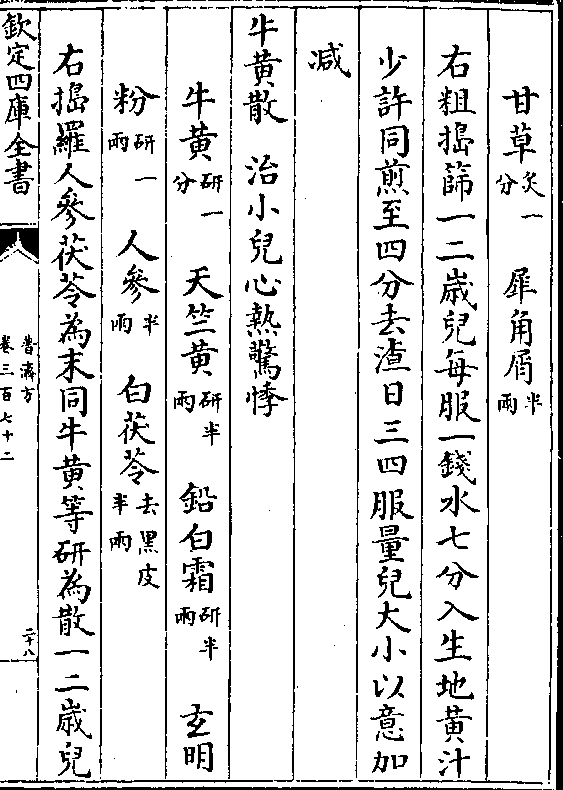 甘草炙一分　犀角屑半兩
右粗搗篩一二歲兒每服一錢水七分入生地黄汁
少許同煎至四分去渣日三四服量兒大小以意加
減
牛黄散　治小兒心熱驚悸
牛黄研一分　天竺黄研半兩　鉛白霜研半兩　玄明
粉研一兩　人參半兩　白茯苓去黑皮半兩
右搗羅人參茯苓為末同牛黄等研為散一二歲兒
欽定四庫全書
普濟方
卷三百七十二
二十八